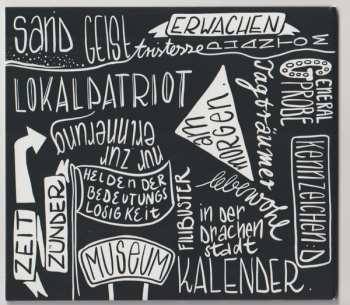 SAND GEIST
tristesse
ERWACHEN
PHANTOM
GENERAL
PROBE
LOKALPATRIOT
Tagträumer
am
MORGEN
nur zur
erinnerung
kennzeichen:D
HELDEN DER
BEDEUTUNGS
LOSIGKEIT
ZEIT
ZÜNDER
FILIBUSTER
lebewohl
in der
drachen
stadt
MUSEUM
KALENDER.